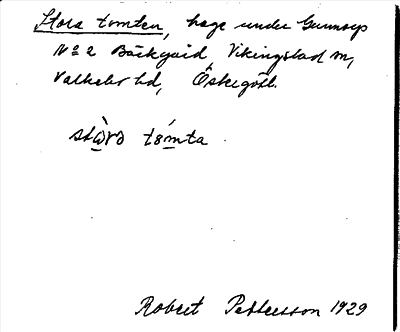 Stora tomten, hage under Gunnorp
N:o 2 Bäckgård, Vikingstad sn,
Valkebo hd, Östergötl.
stɷ̀rɔ tómta
Robert Pettersson 1929